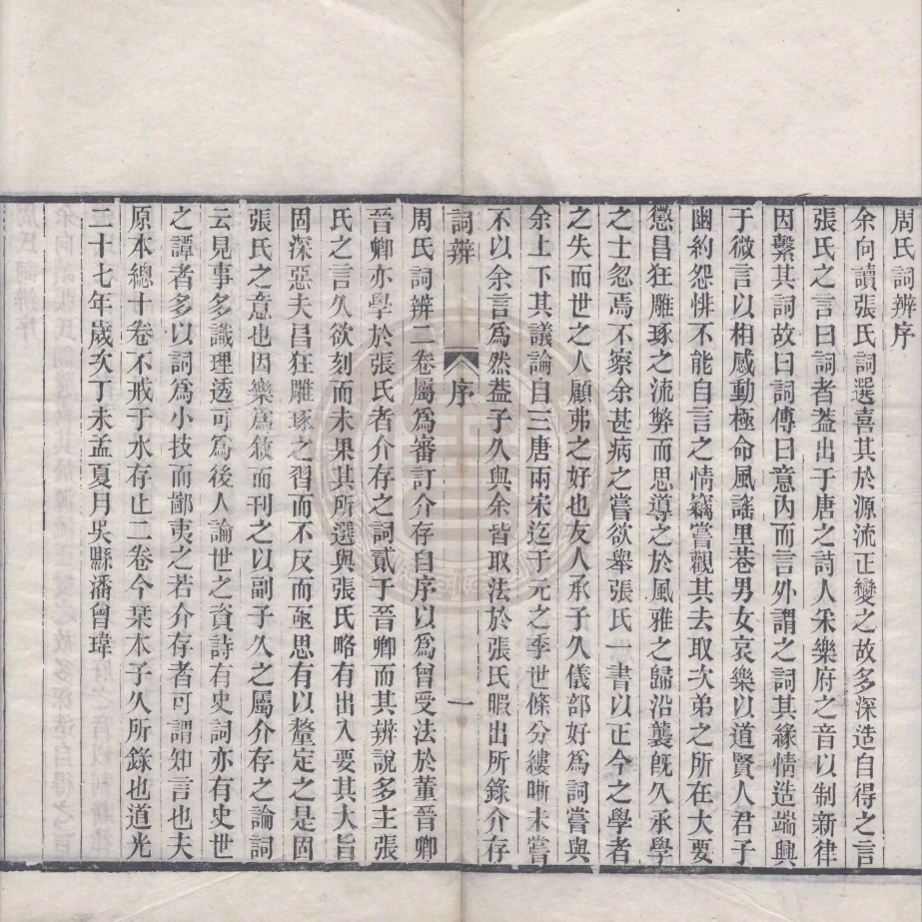 周氏詞辨序
余向讀張氏詞選喜其於源流正變之故多深造自得之言
張氏之言曰詞者葢出于唐之詩人采樂府之音以制新律
因繫其詞故曰詞傳曰意內而言外謂之詞其緣情造端興
于微言以相感動極命風謠里巷男女哀樂以道賢人君子
幽約怨悱不能自言之情竊嘗觀其去取次弟之所在大要
懲昌狂雕琢之流弊而思導之於風雅之歸沿襲既久承學
之士忽焉不察余甚病之嘗欲舉張氏一書以正今之學者
之失而世之人顧弗之好也友人承子久儀部好為詞嘗與
余上下其議論自三唐兩宋迄于元之季世條分縷晰未嘗
不以余言為然葢子久與余皆取法於張氏暇出所錄介存
詞辨 序 一
周氏詞辨二卷屬為審訂介存自序以為曾受法於董晉卿
晉卿亦學於張氏者介存之詞貳于晉卿而其辨說多主張
氏之言久欲刻而未果其所選與張氏略有出入要其大旨
固深惡夫昌狂雕琢之習而不反而亟思有以釐定之是固
張氏之意也因樂為敘而刊之以副子久之屬介存之論詞
云見事多識理透可為後人論世之資詩有史詞亦有史世
之譚者多以詞為小技而鄙夷之若介存者可謂知言也夫
原本總十卷不戒于水存止二卷今栞本子久所錄也道光
二十七年歲次丁未孟夏月吳縣潘曾瑋